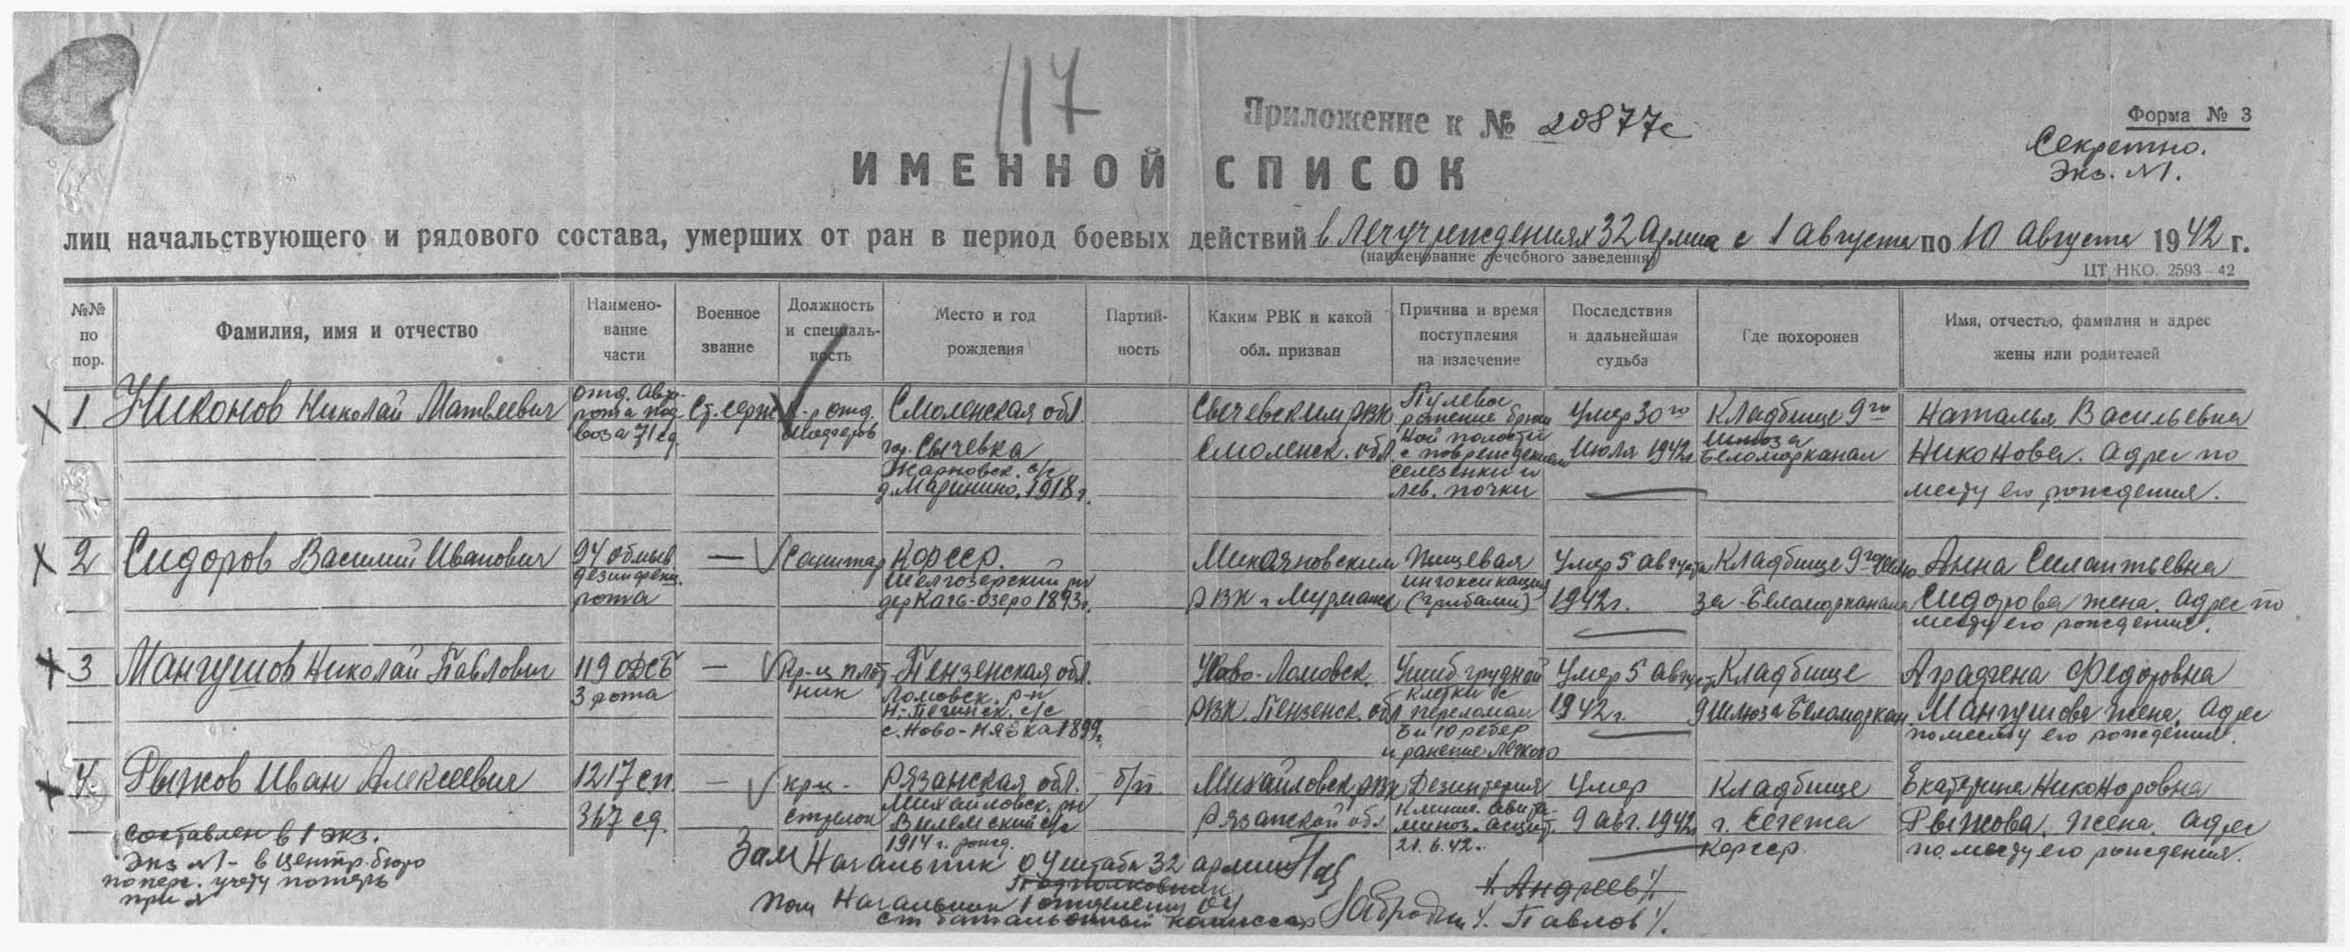 117
Приложение к № 20877с
Форма № 3
Секретно.
Экз. №1.
ИМЕННОЙ СПИСОК
лиц начальствующего и рядового состава, умерших от ран в период боевых действий в лечучреждениях 32 Армии с 1 августа по 10 августа 1942 г.
(наименование лечебного заведения)
ЦТ НКО. 2593—42
№№ по пор.
Фамилия, имя и отчество
Наимено-вание части
Военное звание
Должность и специаль-ность
Место и год рождения
Партий-ность
Каким РВК и какой обл. призван
Причина и время поступления на излечение
Последствия и дальнейшая судьба
Где похоронен
Имя, отчество, фамилия и адрес жены или родителей
1 Никонов Николай Матвеевич
отд. авто-
рота под-
воза 71 сд
Ст. серж
к-р отд.
Смоленская обл.
гор. Сычевка
Жарновск. с/с
д. Маринино, 1918 г.
Сычевским РВК
Смоленск. обл.
Пулевое
ранение брюш
ной полости
с повреждением
селезенки и
лев. почки
Умер 30го
июля 1942г
Кладбище 9го
шлюза
Беломорканал
Наталья Васильевна
Никонова. Адрес по
месту его рождения.
2 Сидоров Василий Иванович
94 обмыв.
дезинфекц.
рота
—
Санитар
КФССР.
Шелгозерский рн
дер Кагь-озеро 1893г.
Микояновским
РВК г Мурманск
Пищевая
интоксикация
(грибами)
Умер 5 августа
1942г.
Кладбище 9го шлю
за Беломорканала
Анна Силантьевна
Сидорова жена. Адрес по
месту его рождения.
3 Мангушов Николай Павлович
119 ОДСБ
3 рота
—
Кр-ц плот
ник
Пензенская обл.
Ломовск. р-н
Н-Пегинск. с/с
1899г.
Ново-Ломовск.
РВК Пензенск. обл
Ушиб грудной
клетки с
переломом
8 и 10 ребер
и ранение легкого
Умер 5 август
1942 г.
Кладбище
9 шлюза Беломоркан
Аграфена Федоровна
Мангушова жена. Адрес
по месту его рождения.
4. Рыжов Иван Алексеевич
1217 сп.
367 сд.
—
кр-ц-
стрелок
Рязанская обл.
Михайловск. рн
с/с
1914 г. рожд.
б/п.
Михайловск. РВК
Рязанской обл
Дезинтерия
21.6.42.
Умер
9 авг. 1942г
Кладбище
г. Сегежа
КФССР
Екатерина Никоноровна
Рыжова. Жена. Адрес
по месту его рождения.
Составлен в 1 экз.
Экз №1 - в центр. бюро
по перс. учету потерь
Зам Начальник ОУ штаба 32 армии
Подполковник
/Андреев/
Пом Начальник 1 отделения ОУ
ст батальонный комиссар
/Павлов/.